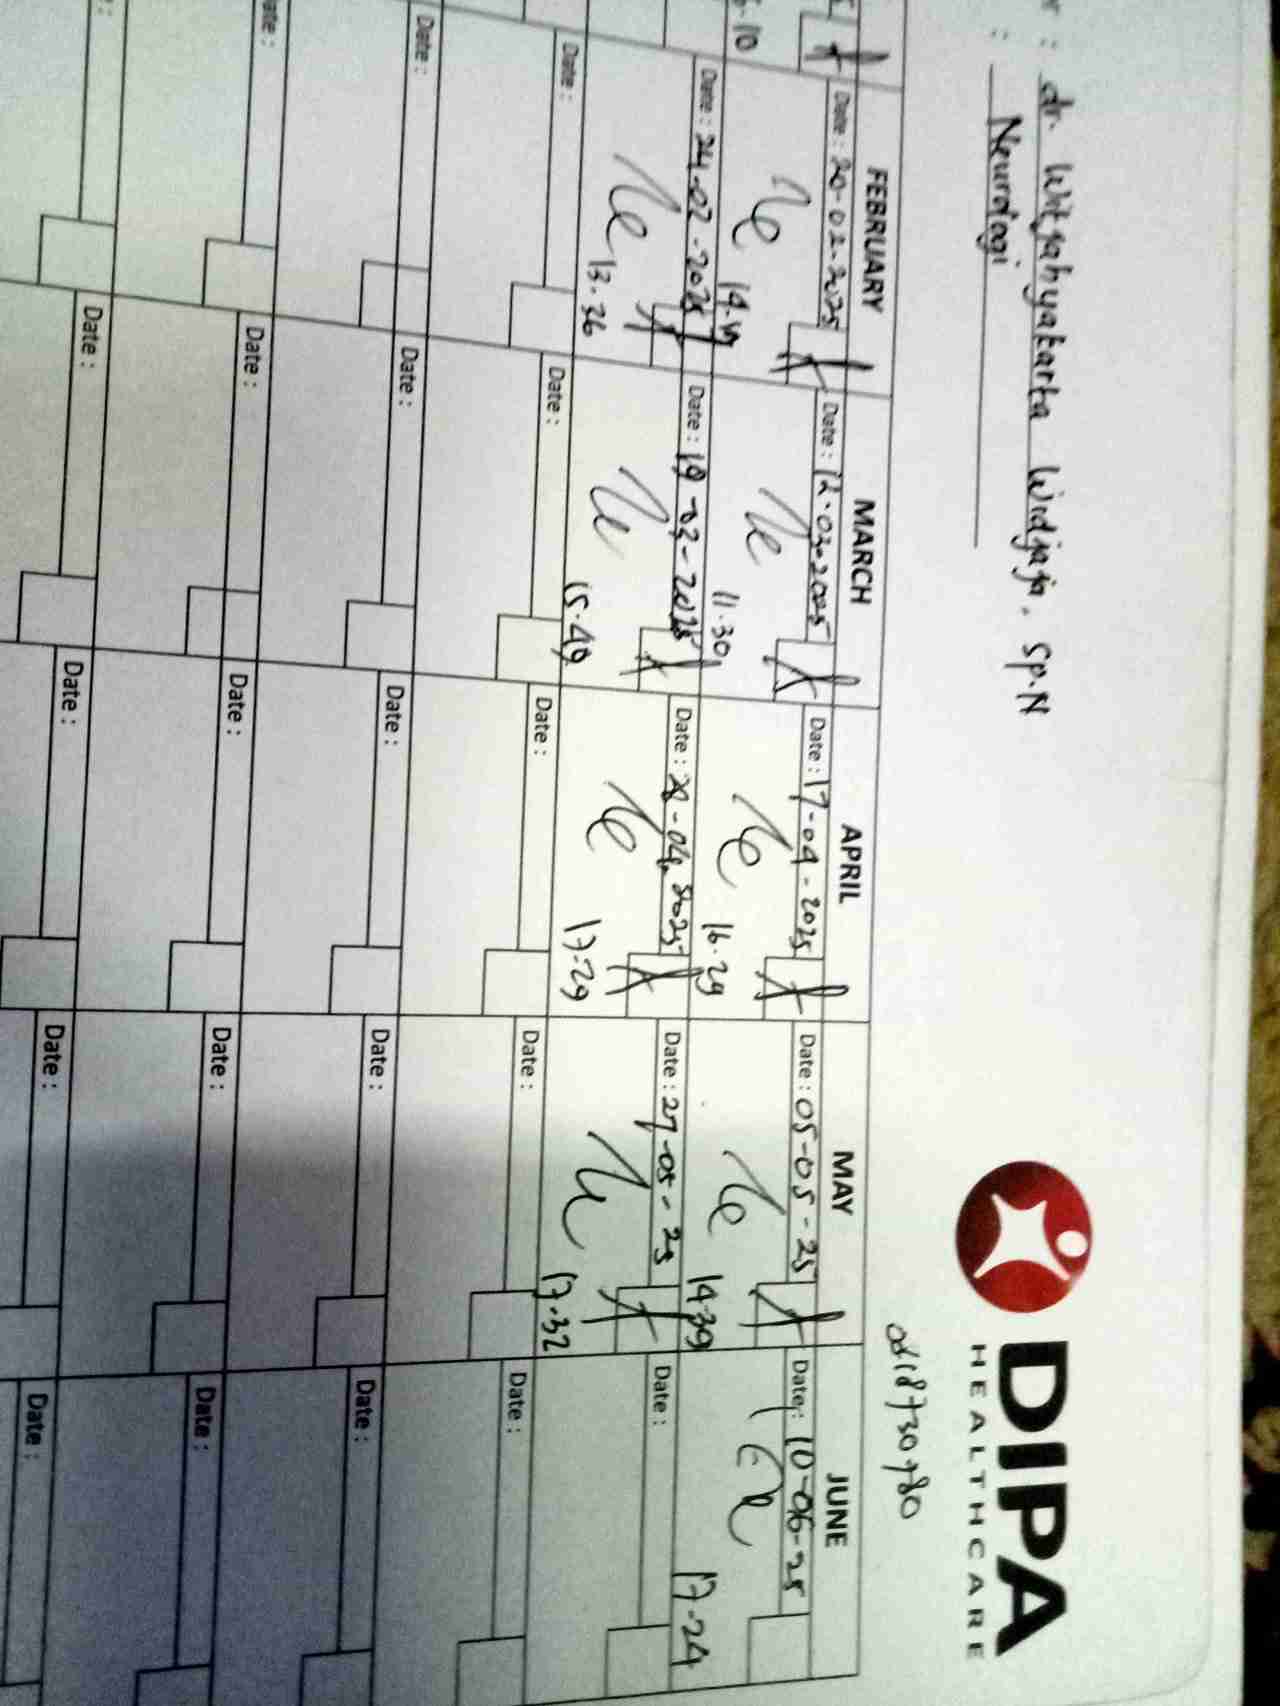 dr. Witjahyakarta Widjaja. Sp.N
Neurologi
DIPA
HEALTHCARE
FEBRUARY MARCH APRIL MAY JUNE
Date : 20-02-2025 Date : 12-03-2025 Date : 17-04-2025 Date : 05-05-25 Date : 10-06-25
11.30 16.29 14.39 17-24
Date : 24-02-2025 Date : 19-03-2025 Date : Date : 27-05-25 Date :
13.36 15.49 17.29 17.32
Date : Date : Date : Date : Date :
Date : Date : Date : Date : Date :
Date : Date : Date : Date :
Date : Date : Date : Date :